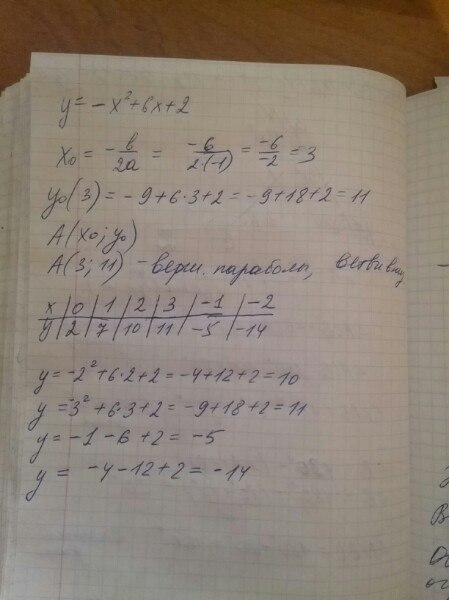 y = -x² + 6x + 2
x₀ = -b/2a = -6/2·(-1) = -6/-2 = 3
y₀(3) = -9+6·3+2 = -9+18+2 = 11
A(x₀; y₀)
A(3; 11) - верш. параболы, ветви вниз
x | 0 | 1 | 2 | 3 | -1 | -2
y | 2 | 7 | 10 | 11 | -5 | -14
y = -2² + 6·2 + 2 = -4+12+2 = 10
y = 3² + 6·3 + 2 = -9+18+2 = 11
y = -1 - 6 + 2 = -5
y = -4 - 12 + 2 = -14